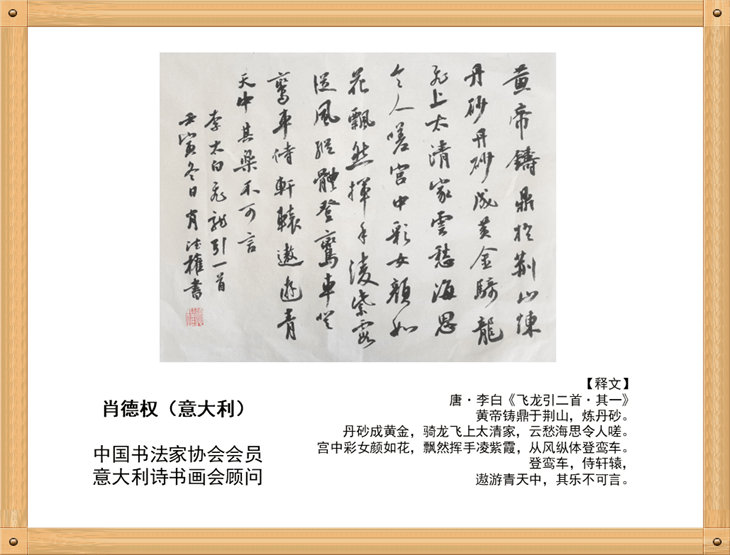 黄帝鑄鼎於荆山煉
丹砂丹砂成黄金騎龍
飛上太清家雲愁海思
令人嗟宫中彩女顔如
花飄然揮手凌紫霞
從風縱體登鸞車登
鸞車侍軒轅遨遊青
天中其樂不可言
李太白飛龍引一首
壬寅冬日肖德權書
肖德权（意大利）
中国书法家协会会员
意大利诗书画会顾问
【释文】
唐·李白《飞龙引二首·其一》
黄帝铸鼎于荆山，炼丹砂。
丹砂成黄金，骑龙飞上太清家，云愁海思令人嗟。
宫中彩女颜如花，飘然挥手凌紫霞，从风纵体登鸾车。
登鸾车，侍轩辕，
遨游青天中，其乐不可言。